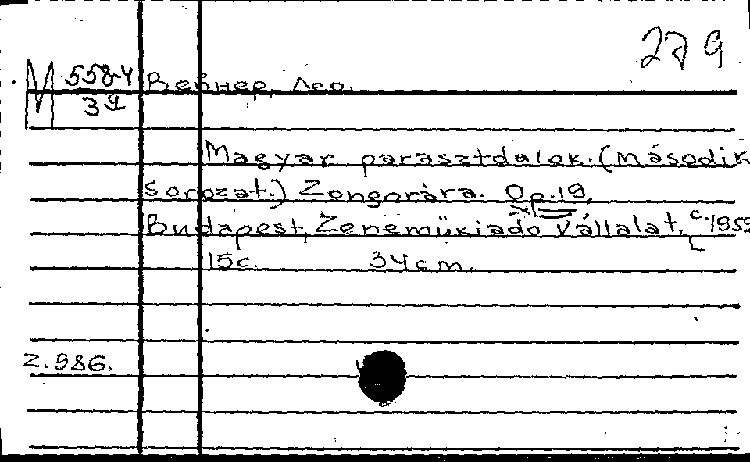 279
М 5584/39 Вейнер, Лео.
Magyar parasztdalok. (Második
sorozat.) Zongorára. Op.19,
Budapest, Zeneműkiadó Vállalat,
15c. 34cm.
2.986.